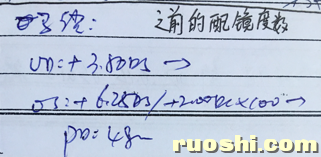 之前的配镜度数
OD: +3.80DS →
OS: +6.25DS/+2.00DC×100 →
PD = 48mm
ruoshi.com